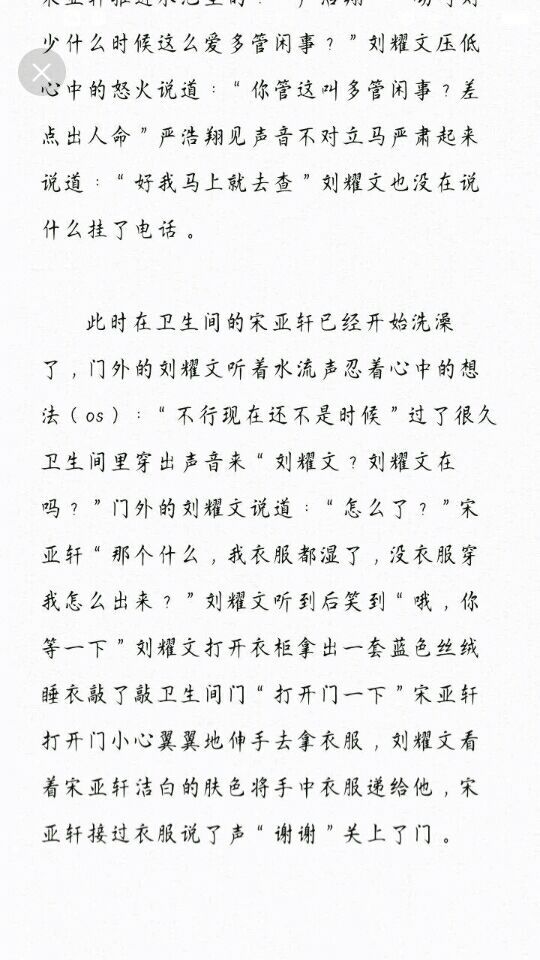 少什么时候这么爱多管闲事？”刘耀文压低
心中的怒火说道：“你管这叫多管闲事？差
点出人命”严浩翔见声音不对立马严肃起来
说道：“好我马上就去查”刘耀文也没在说
什么挂了电话。
此时在卫生间的宋亚轩已经开始洗澡
了，门外的刘耀文听着水流声忍着心中的想
法（os）：“不行现在还不是时候”过了很久
卫生间里穿出声音来“刘耀文？刘耀文在
吗？”门外的刘耀文说道：“怎么了？”宋
亚轩“那个什么，我衣服都湿了，没衣服穿
我怎么出来？”刘耀文听到后笑到“哦，你
等一下”刘耀文打开衣柜拿出一套蓝色丝绒
睡衣敲了敲卫生间门“打开门一下”宋亚轩
打开门小心翼翼地伸手去拿衣服，刘耀文看
着宋亚轩洁白的肤色将手中衣服递给他，宋
亚轩接过衣服说了声“谢谢”关上了门。